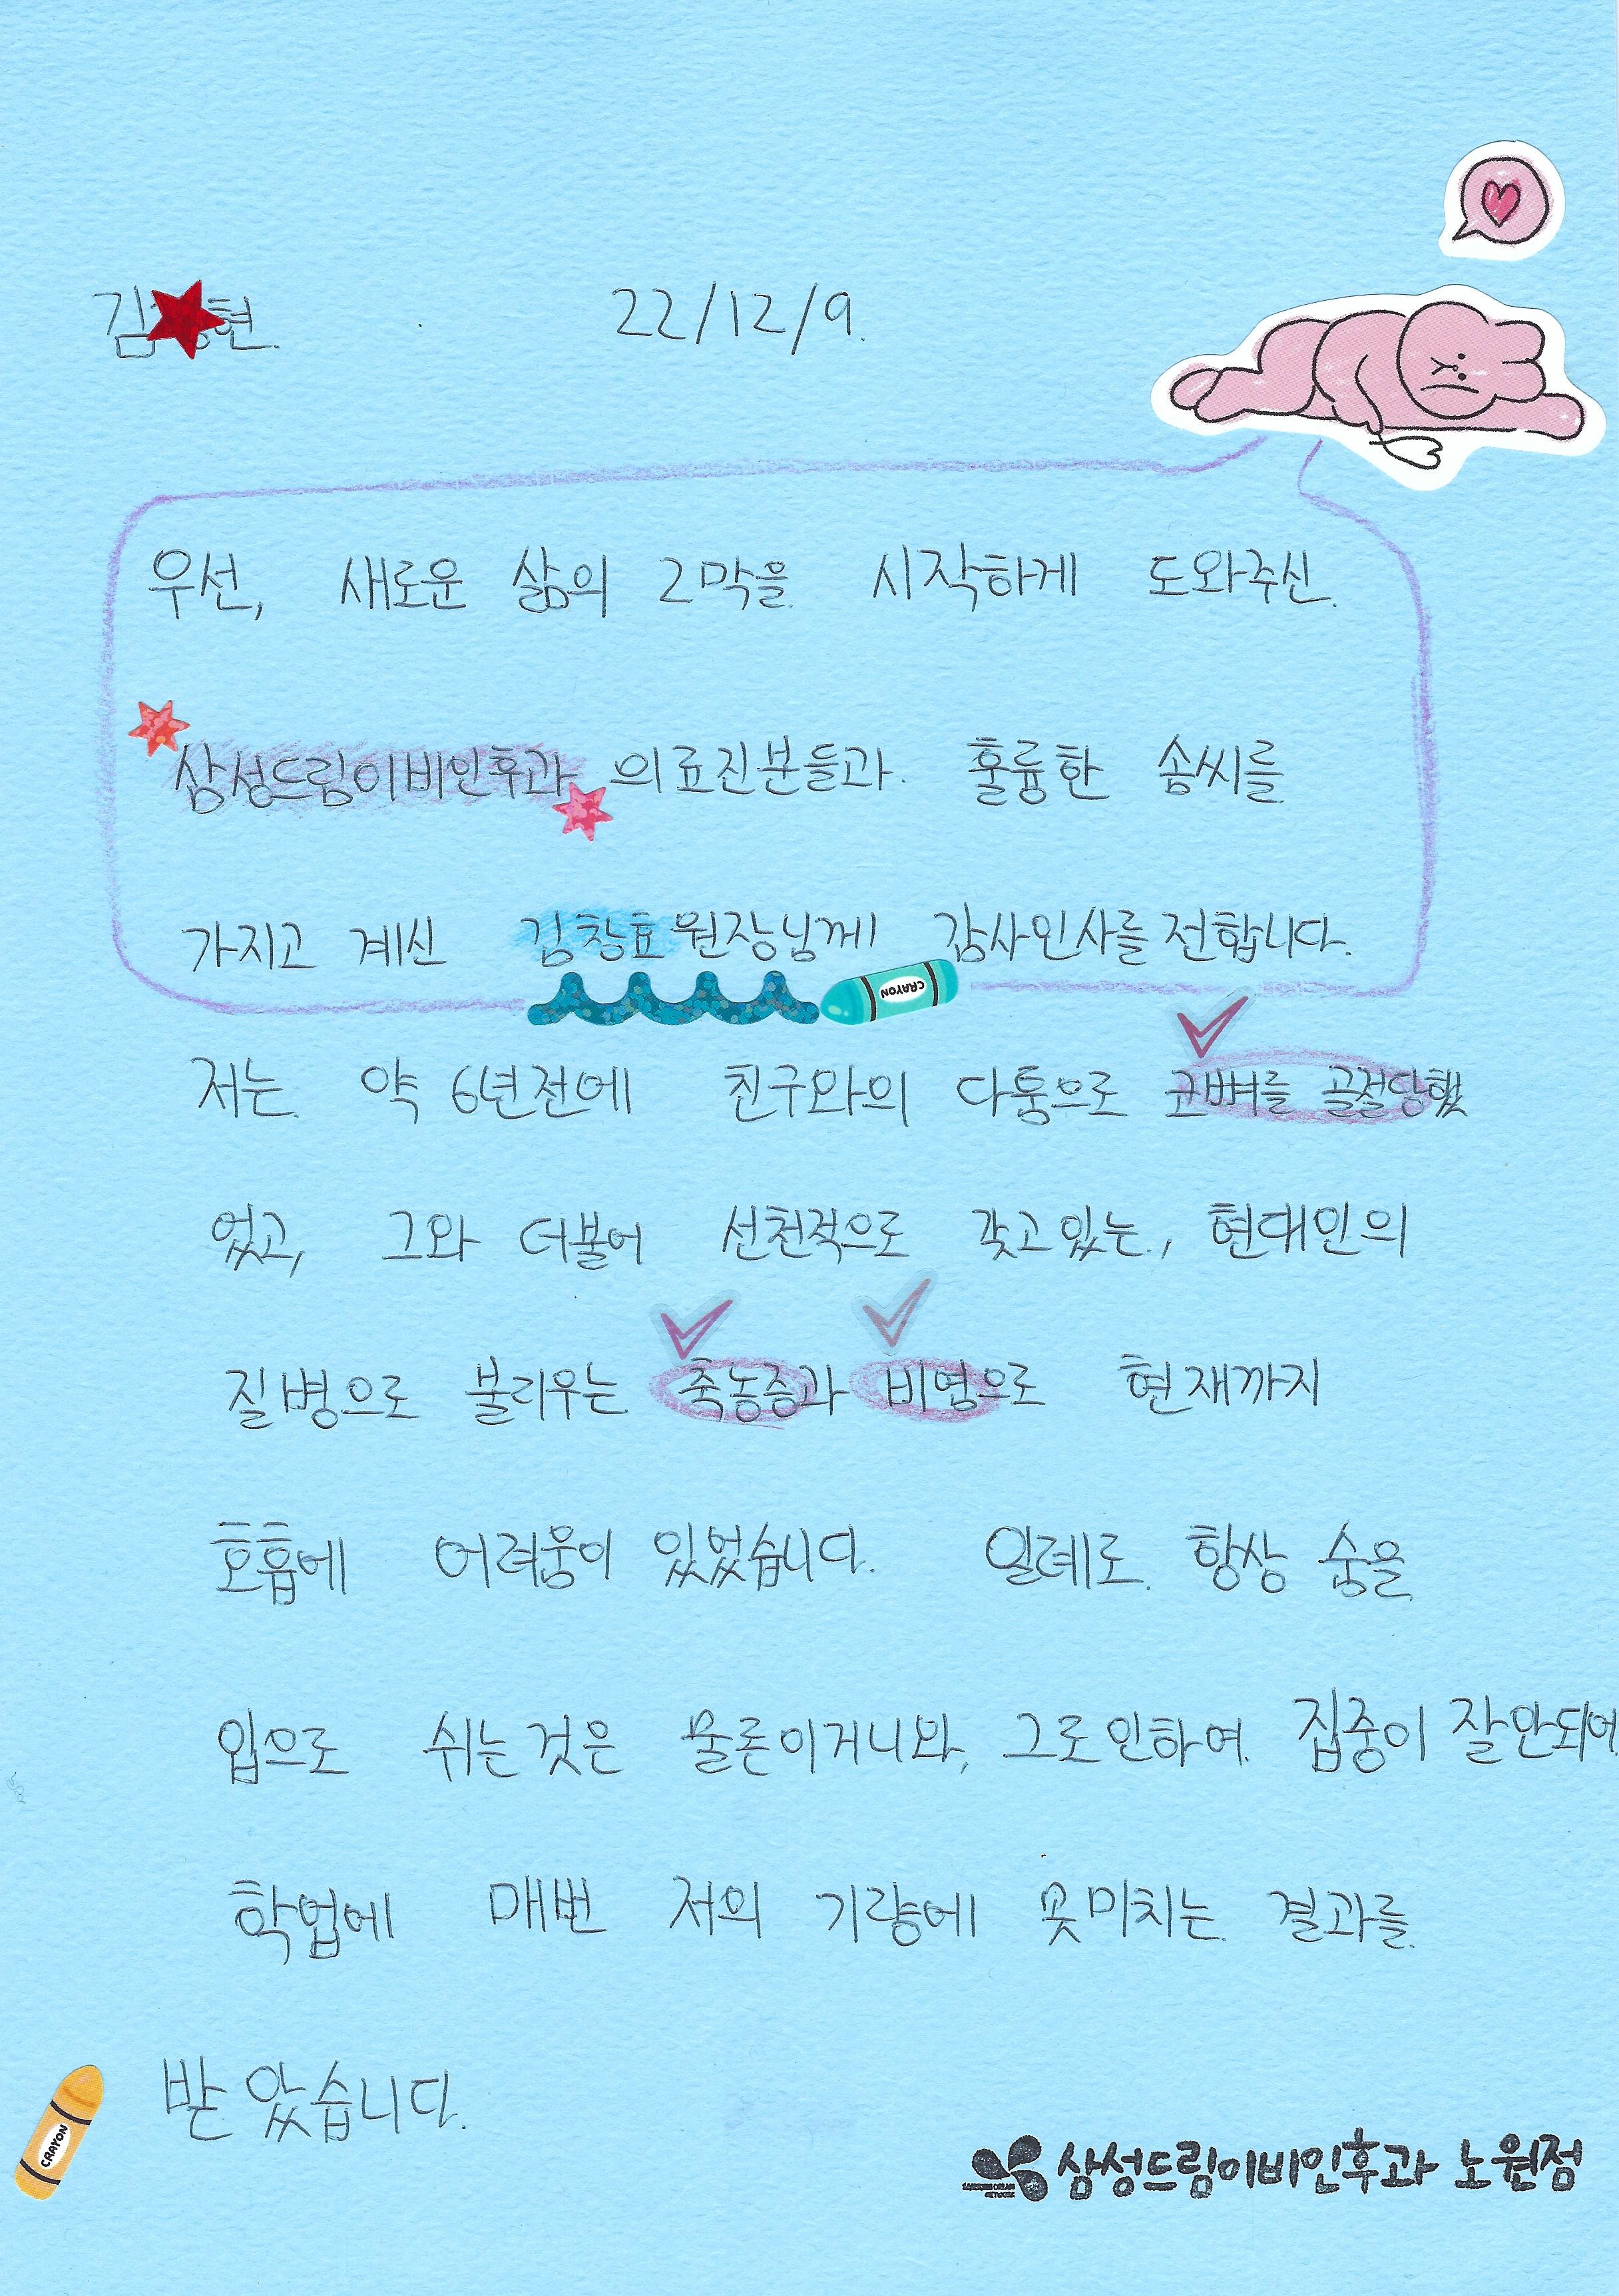 김 현. 22/12/9.
우선, 새로운 삶의 2막을 시작하게 도와주신
삼성드림이비인후과 의료진분들과 훌륭한 솜씨를
가지고 계신 김창효원장님께 감사인사를 전합니다.
CRAYON
저는 약 6년전에 친구와의 다툼으로 코뼈를 골절당했
었고, 그와 더불어 선천적으로 갖고있는, 현대인의
질병으로 불리우는 축농증과 비염으로 현재까지
호흡에 어려움이 있었습니다. 일례로 항상 숨을
입으로 쉬는것은 물론이거니와, 그로인하여 집중이 잘안되어
학업에 매번 저의 기량에 못미치는 결과를
받았습니다.
CRAYON
삼성드림이비인후과 노원점